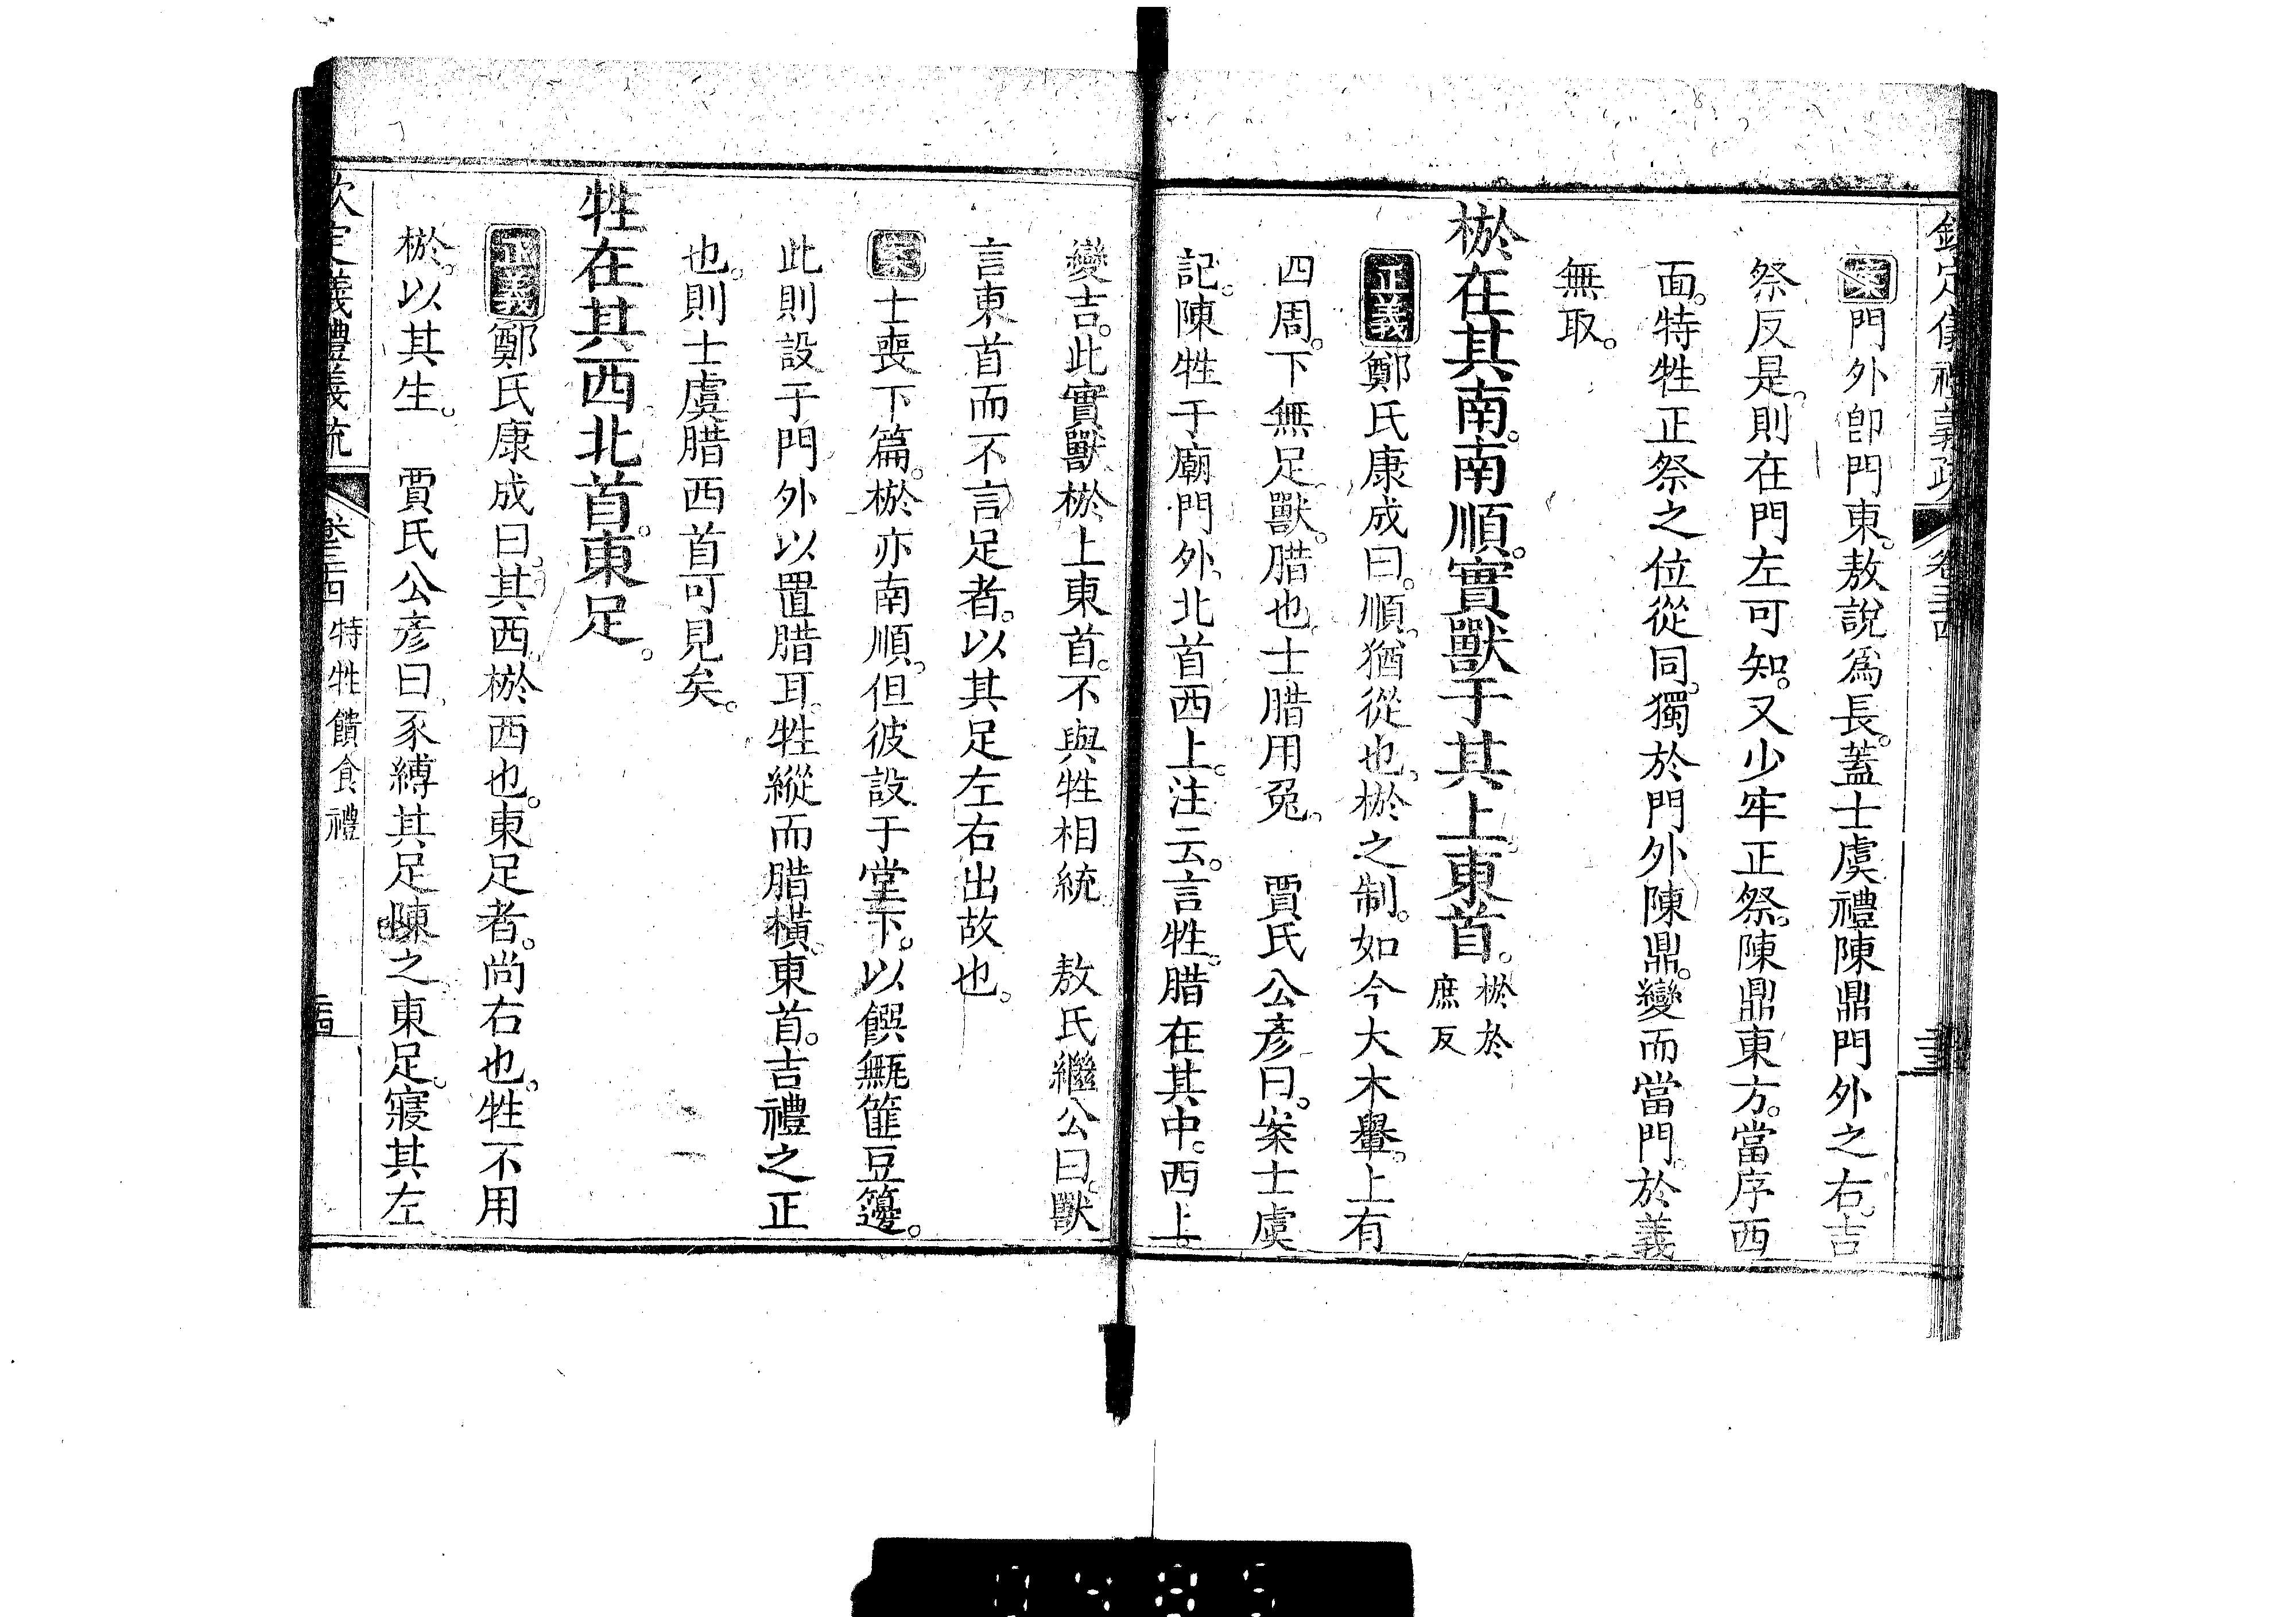 欽定儀禮義疏 卷三四
案門外卽門東。敖說爲長。蓋士虞禮陳鼎門外之右。吉
祭反是。則在門左可知。又少牢正祭。陳鼎東方。當序西
面。特牲正祭之位從同。獨於門外陳鼎。變而當門。於義
無取。
棜在其南。南順。實獸于其上。東首。棜於庶反
正義鄭氏康成曰。順。猶從也。棜之制。如今大木轝。上有
四周。下無足。獸。腊也。士腊用兔。 賈氏公彥曰。案士虞
記。陳牲于廟門外。北首西上。注云。言牲。腊在其中。西上。
變吉。此實獸棜上東首。不與牲相統 敖氏繼公曰。獸
言東首而不言足者。以其足左右出故也。
案士喪下篇。棜亦南順。但彼設于堂下。以饌甒篚豆籩。
此則設于門外以置腊耳。牲縱而腊橫。東首。吉禮之正
也。則士虞腊西首可見矣。
牲在其西。北首。東足。
正義鄭氏康成曰。其西。棜西也。東足者。尚右也。牲不用
棜。以其生。 賈氏公彥曰。豕縛其足陳之東足。寢其左
欽定義禮義疏 卷三四 特牲饋食禮